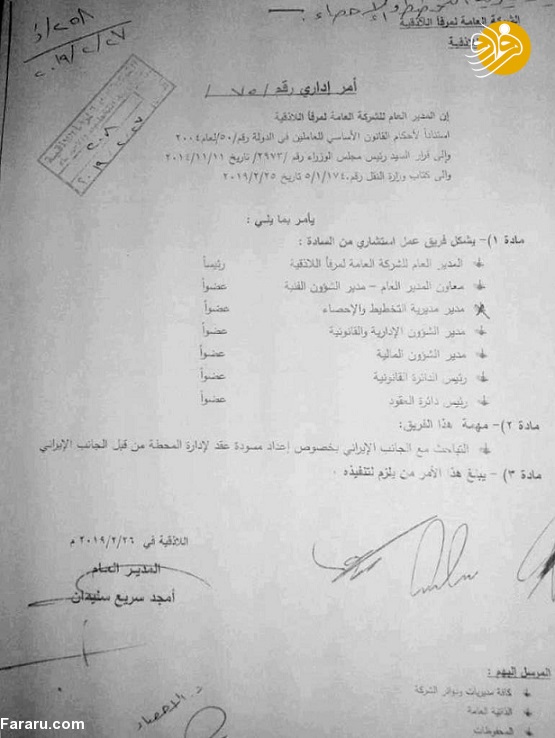 الشركة العامة لمرفأ اللاذقية
اللاذقية
فرارو
٢٥٨/ذ
٢٠١٩/٢/٢٧
أمر إداري رقم /٧٥ /
إن المدير العام للشركة العامة لمرفأ اللاذقية
استناداً لأحكام القانون الأساسي للعاملين في الدولة رقم /٥٠/ لعام ٢٠٠٤
وإلى قرار السيد رئيس مجلس الوزراء رقم /٢٩٧٣/ تاريخ ٢٠١٤/١١/١١
وإلى كتاب وزارة النقل رقم ٥/١/١٧٤ تاريخ ٢٠١٩/٢/٢٥
يأمر بما يلي :
مادة ١)- يشكل فريق عمل استشاري من السادة :
المدير العام للشركة العامة لمرفأ اللاذقية رئيساً
معاون المدير العام – مدير الشؤون الفنية عضواً
مدير مديرية التخطيط والإحصاء عضواً
مدير الشؤون الإدارية والقانونية عضواً
مدير الشؤون المالية عضواً
رئيس الدائرة القانونية عضواً
رئيس دائرة العقود عضواً
مادة ٢)- مهمة هذا الفريق:
التباحث مع الجانب الإيراني بخصوص إعداد مسودة عقد لإدارة المحطة من قبل الجانب الإيراني
مادة ٣)- يبلغ هذا الأمر من يلزم لتنفيذه .
اللاذقية في ٢٠١٩/٢/٢٦ م
المدير العام
أمجد سريع سليمان
المرسل إليهم :
كافة مديريات ودوائر الشركة
الذاتية العامة
المحفوظات
Fararu.com